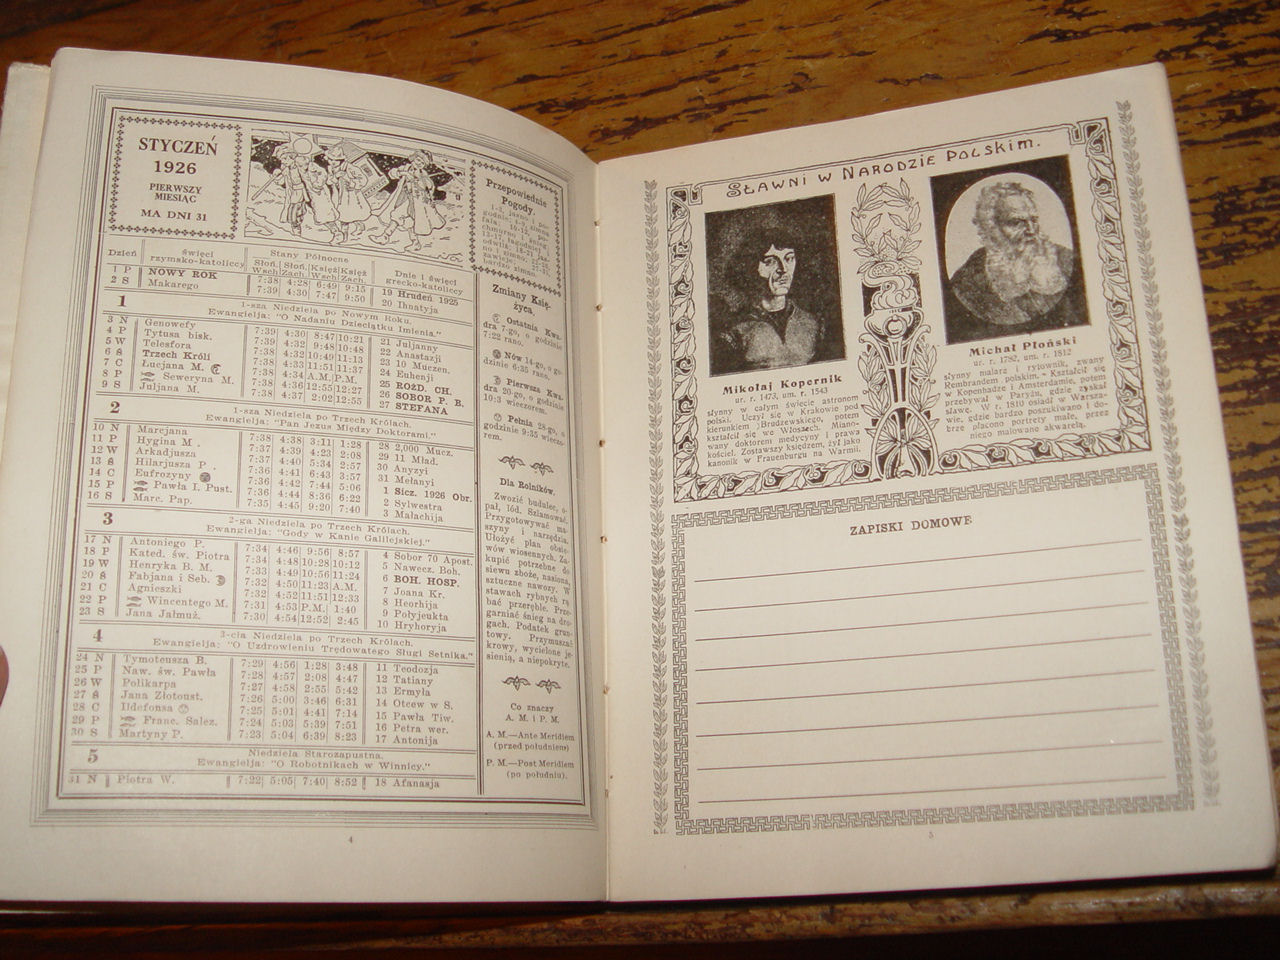 STYCZEŃ
1926
PIERWSZY
MIESIĄC
MA DNI 31
Dzień święci rzymsko-katoliccy Stany Północne Słoń. Wsch Słoń. Zach. Księż Wsch. Księż Zach. Dnie i święci grecko-katoliccy
1 P NOWY ROK 7:38 4:28 6:49 9:15 19 Hrudeń 1925
2 S Makarego 7:39 4:30 7:47 9:50 20 Ihnatyja
1 1-sza Niedziela po Nowym Roku.
Ewangielja: "O Nadaniu Dzieciątku Imienia."
3 N Genowefy 7:39 4:30 8:47 10:21 21 Juljanny
4 P Tytusa bisk. 7:39 4:32 9:48 10:48 22 Anastazji
5 W Telesfora 7:38 4:32 10:49 11:13 23 10 Muczen.
6 Ś Trzech Króli 7:38 4:33 11:51 11:37 24 Euhenji
7 C Lucjana M. 7:38 4:34 A.M. P.M. 25 ROŻD. CH.
8 P Seweryna M. 7:38 4:36 12:55 12:27 26 SOBOR P. B.
9 S Juljana M. 7:38 4:37 2:02 12:57 27 STEFANA
2 1-sza Niedziela po Trzech Królach.
Ewangielja: "Pan Jezus Między Doktorami."
10 N Marcjana 7:38 4:38 3:11 1:28 28 2,000 Mucz.
11 P Hygina M. 7:37 4:38 4:23 2:08 29 11 Mład.
12 W Arkadjusza 7:37 4:40 5:34 2:57 30 Anyzyi
13 Ś Hilarjusza P. 7:36 4:41 6:43 3:57 31 Melanyi
14 C Eufrozyny 7:36 4:42 7:44 5:06 1 Sicz. 1926 Obr.
15 P Pawła I. Pust. 7:36 4:44 8:36 6:22 2 Sylwestra
16 S Marc. Pap. 7:35 4:45 9:20 7:40 3 Małachija
3 2-ga Niedziela po Trzech Królach.
Ewangielja: "Gody w Kanie Galilejskiej."
17 N Antoniego P. 7:34 4:46 9:56 8:57 4 Sobor 70 Apost.
18 P Kated. św. Piotra 7:34 4:48 10:28 10:12 5 Nawecz. Boh.
19 W Henryka B. M. 7:33 4:49 10:56 11:24 6 BOH. HOSP.
20 Ś Fabjana i Seb. 7:32 4:50 11:23 A.M. 7 Joana Kr.
21 C Agnieszki 7:32 4:52 11:51 12:33 8 Heorhija
22 P Wincentego M. 7:31 4:53 P.M. 1:40 9 Połyjeukta
23 S Jana Jałmuż. 7:30 4:54 12:52 10 Hryhoryja
4 3-cia Niedziela po Trzech Królach.
Ewangielja: "O Uzdrowieniu Trędowatego Sługi Setnika."
24 N Tymoteusza B. 7:29 4:56 1:28 3:48 11 Teodozja
25 P Naw. św. Pawła 7:28 4:57 2:08 4:47 12 Tatiany
26 W Polikarpa 7:27 4:58 2:55 5:42 13 Ermyła
27 Ś Jana Złotoust. 7:26 5:00 3:46 6:31 14 Otcew w S.
28 C Ildefonsa 7:25 5:01 4:41 7:14 15 Pawła Tiw.
29 P Franc. Salez. 7:24 5:03 5:39 7:51 16 Petra wer.
30 S Martyny P. 7:23 5:04 6:39 8:23 17 Antonija
5 Niedziela Starozapustna.
Ewangielja: "O Robotnikach w Winnicy."
31 N Piotra W. 7:22 5:05 7:40 8:52 18 Afanasja
Przepowiednie
Pogody.
Zmiany Księ-
życa.
Ostatnia Kwa-
dra 7-go, o godzinie
7:22 rano.
Nów 14-go, o go-
dzinie 6:35 rano.
Pierwsza Kwa-
dra 20-go, o godzinie
10:3 wieczorem.
Pełnia 28-go, o
godzinie 9:35 wieczo-
rem.
Dla Rolników.
Zwozić budulec, o-
pał, lód. Szlamować.
Przygotowywać ma-
szyny i narzędzia.
Ułożyć plan obsie-
wów wiosennych. Za-
kupić potrzebne do
siewu zboże, nasiona,
sztuczne nawozy. W
stawach rybnych rą-
bać przeręble. Prze-
garniać śnieg na dro-
gach. Podatek grun-
towy. Przymuszać
krowy, wycielone je-
sienią, a niepokryte.
Co znaczy
A. M. i P. M.
A. M.—Ante Meridiem
(przed południem)
P. M.—Post Meridiem
(po południu).
4
SŁAWNI W NARODZIE POLSKIM.
Mikołaj Kopernik
ur. r. 1473, um. r. 1543
słynny w całym świecie astronom
polski. Uczył się w Krakowie pod
kierunkiem Brudzewskiego, potem
kształcił się we Włoszech. Miano-
wany doktorem medycyny i prawa
kościel. Zostawszy księdzem, żył jako
kanonik w Frauenburgu na Warmii.
Michał Płoński
ur. r. 1782, um. r. 1812
słynny malarz i rytownik, zwany
Rembrandem polskim. Kształcił się
w Kopenhadze i Amsterdamie, potem
przebywał w Paryżu, gdzie zyskał
sławę. W r. 1810 osiadł w Warsza-
wie, gdzie bardzo poszukiwano i do-
brze płacono portrety małe, przez
niego malowane akwarelą.
ZAPISKI DOMOWE
5